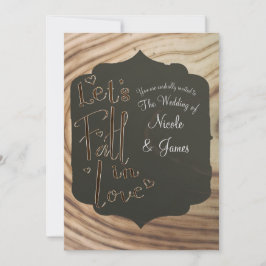 Let's
Fall
in
Love
You are cordially invited to
The Wedding of
Nicole
& James